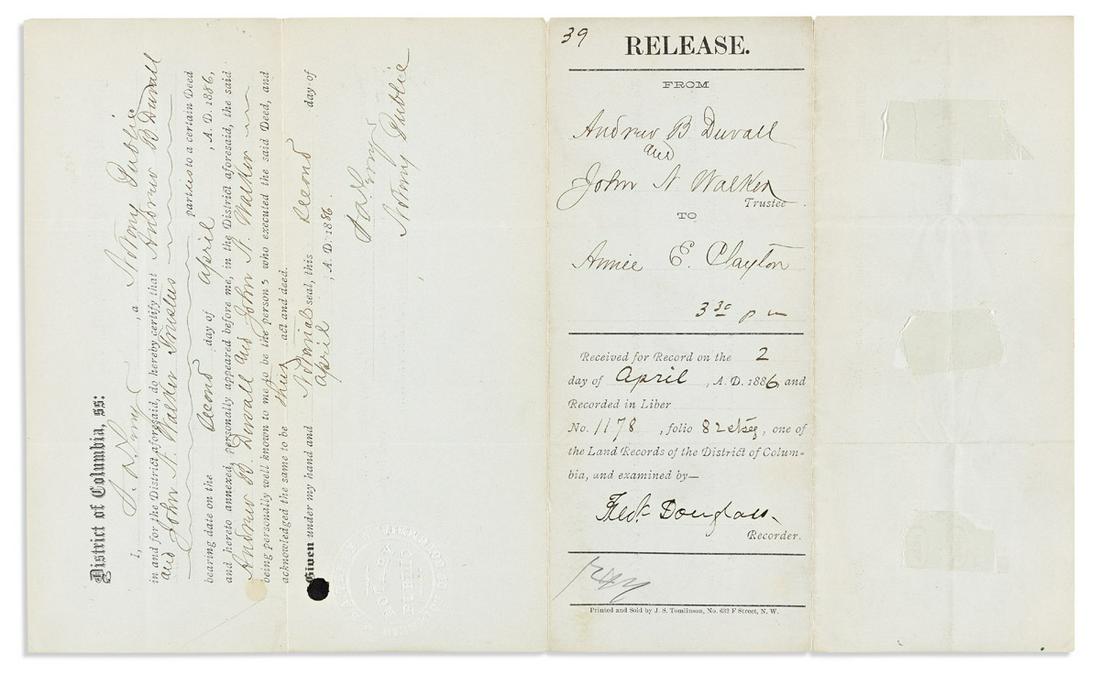 District of Columbia, ss:
I, , a Notary Public
in and for the District aforesaid, do hereby certify that Andrew B Duvall
and John N. Walker Trustees
parties to a certain Deed
bearing date on the second day of April , A. D. 1886,
and hereto annexed, personally appeared before me, in the District aforesaid, the said
Andrew B Duvall and John N. Walker
being personally well known to me to be the persons who executed the said Deed, and
acknowledged the same to be their act and deed.
Given under my hand and Notarial seal, this second day of
April , A. D. 1886.
Notary Public
39
RELEASE.
FROM
Andrew B Duvall
and
John N Walker
Trustee
TO
Annie E. Clayton
3 30 p m
Received for Record on the 2
day of April , A. D. 1886 and
Recorded in Liber
No. 1178 , folio 82 etseq, one of
the Land Records of the District of Colum-
bia, and examined by—
Fredk Douglass
Recorder.
Printed and Sold by J. S. Tomlinson, No. 632 F Street, N. W.